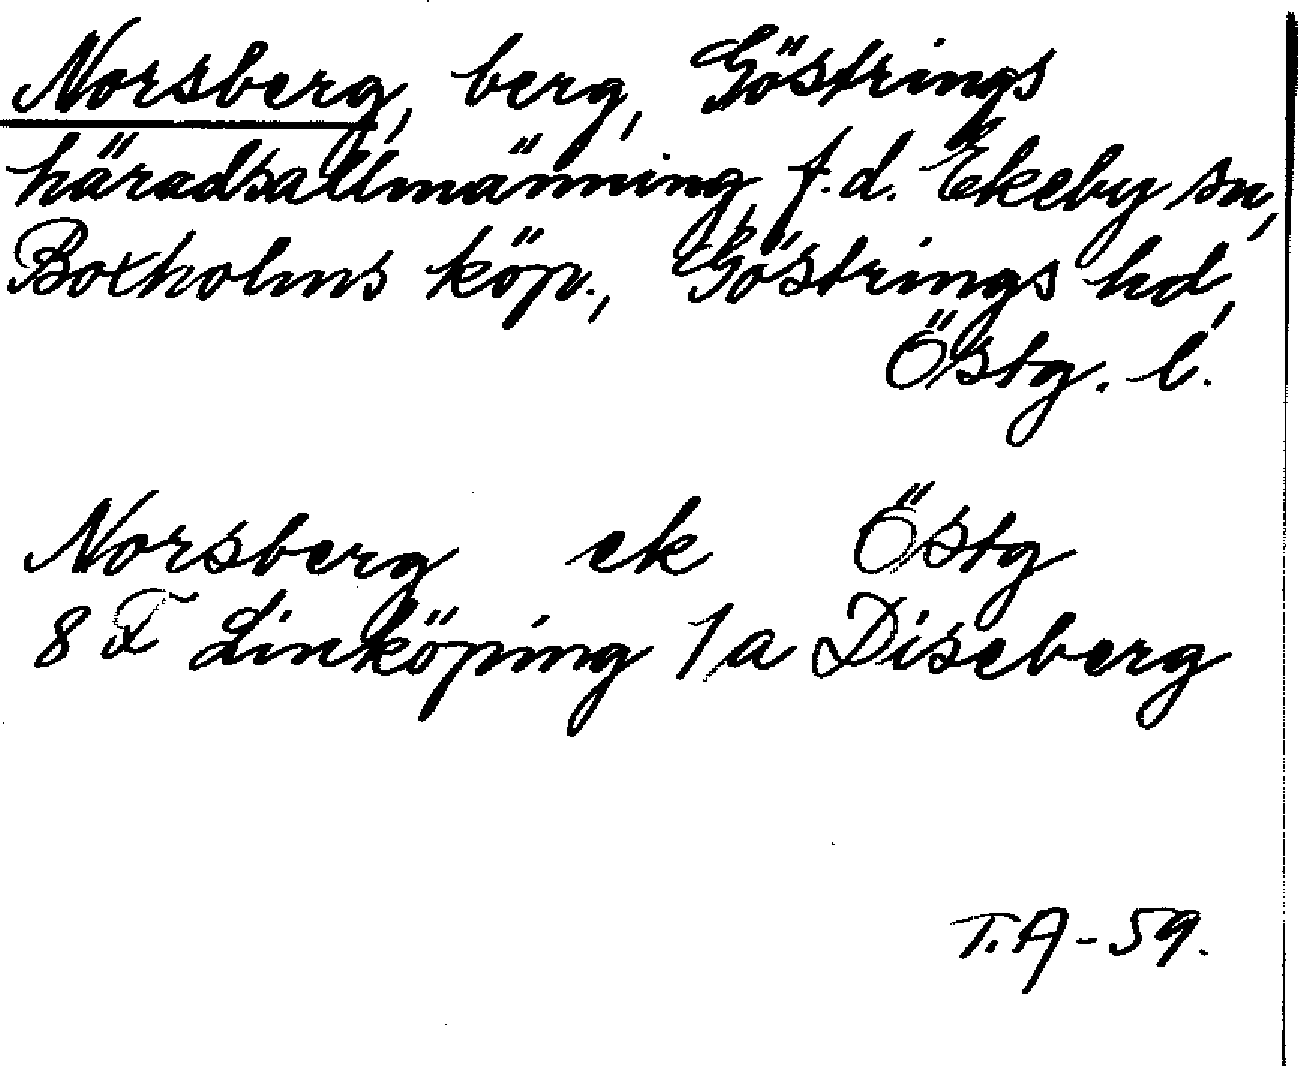 Norsberg, berg, Göstrings
häradsallmänning, f.d. Ekeby sn,
Boxholms köp., Göstrings hd,
Östg. l.
Norsberg ek Östg
8 F Linköping 1 a Diseberg
T.A - 59.